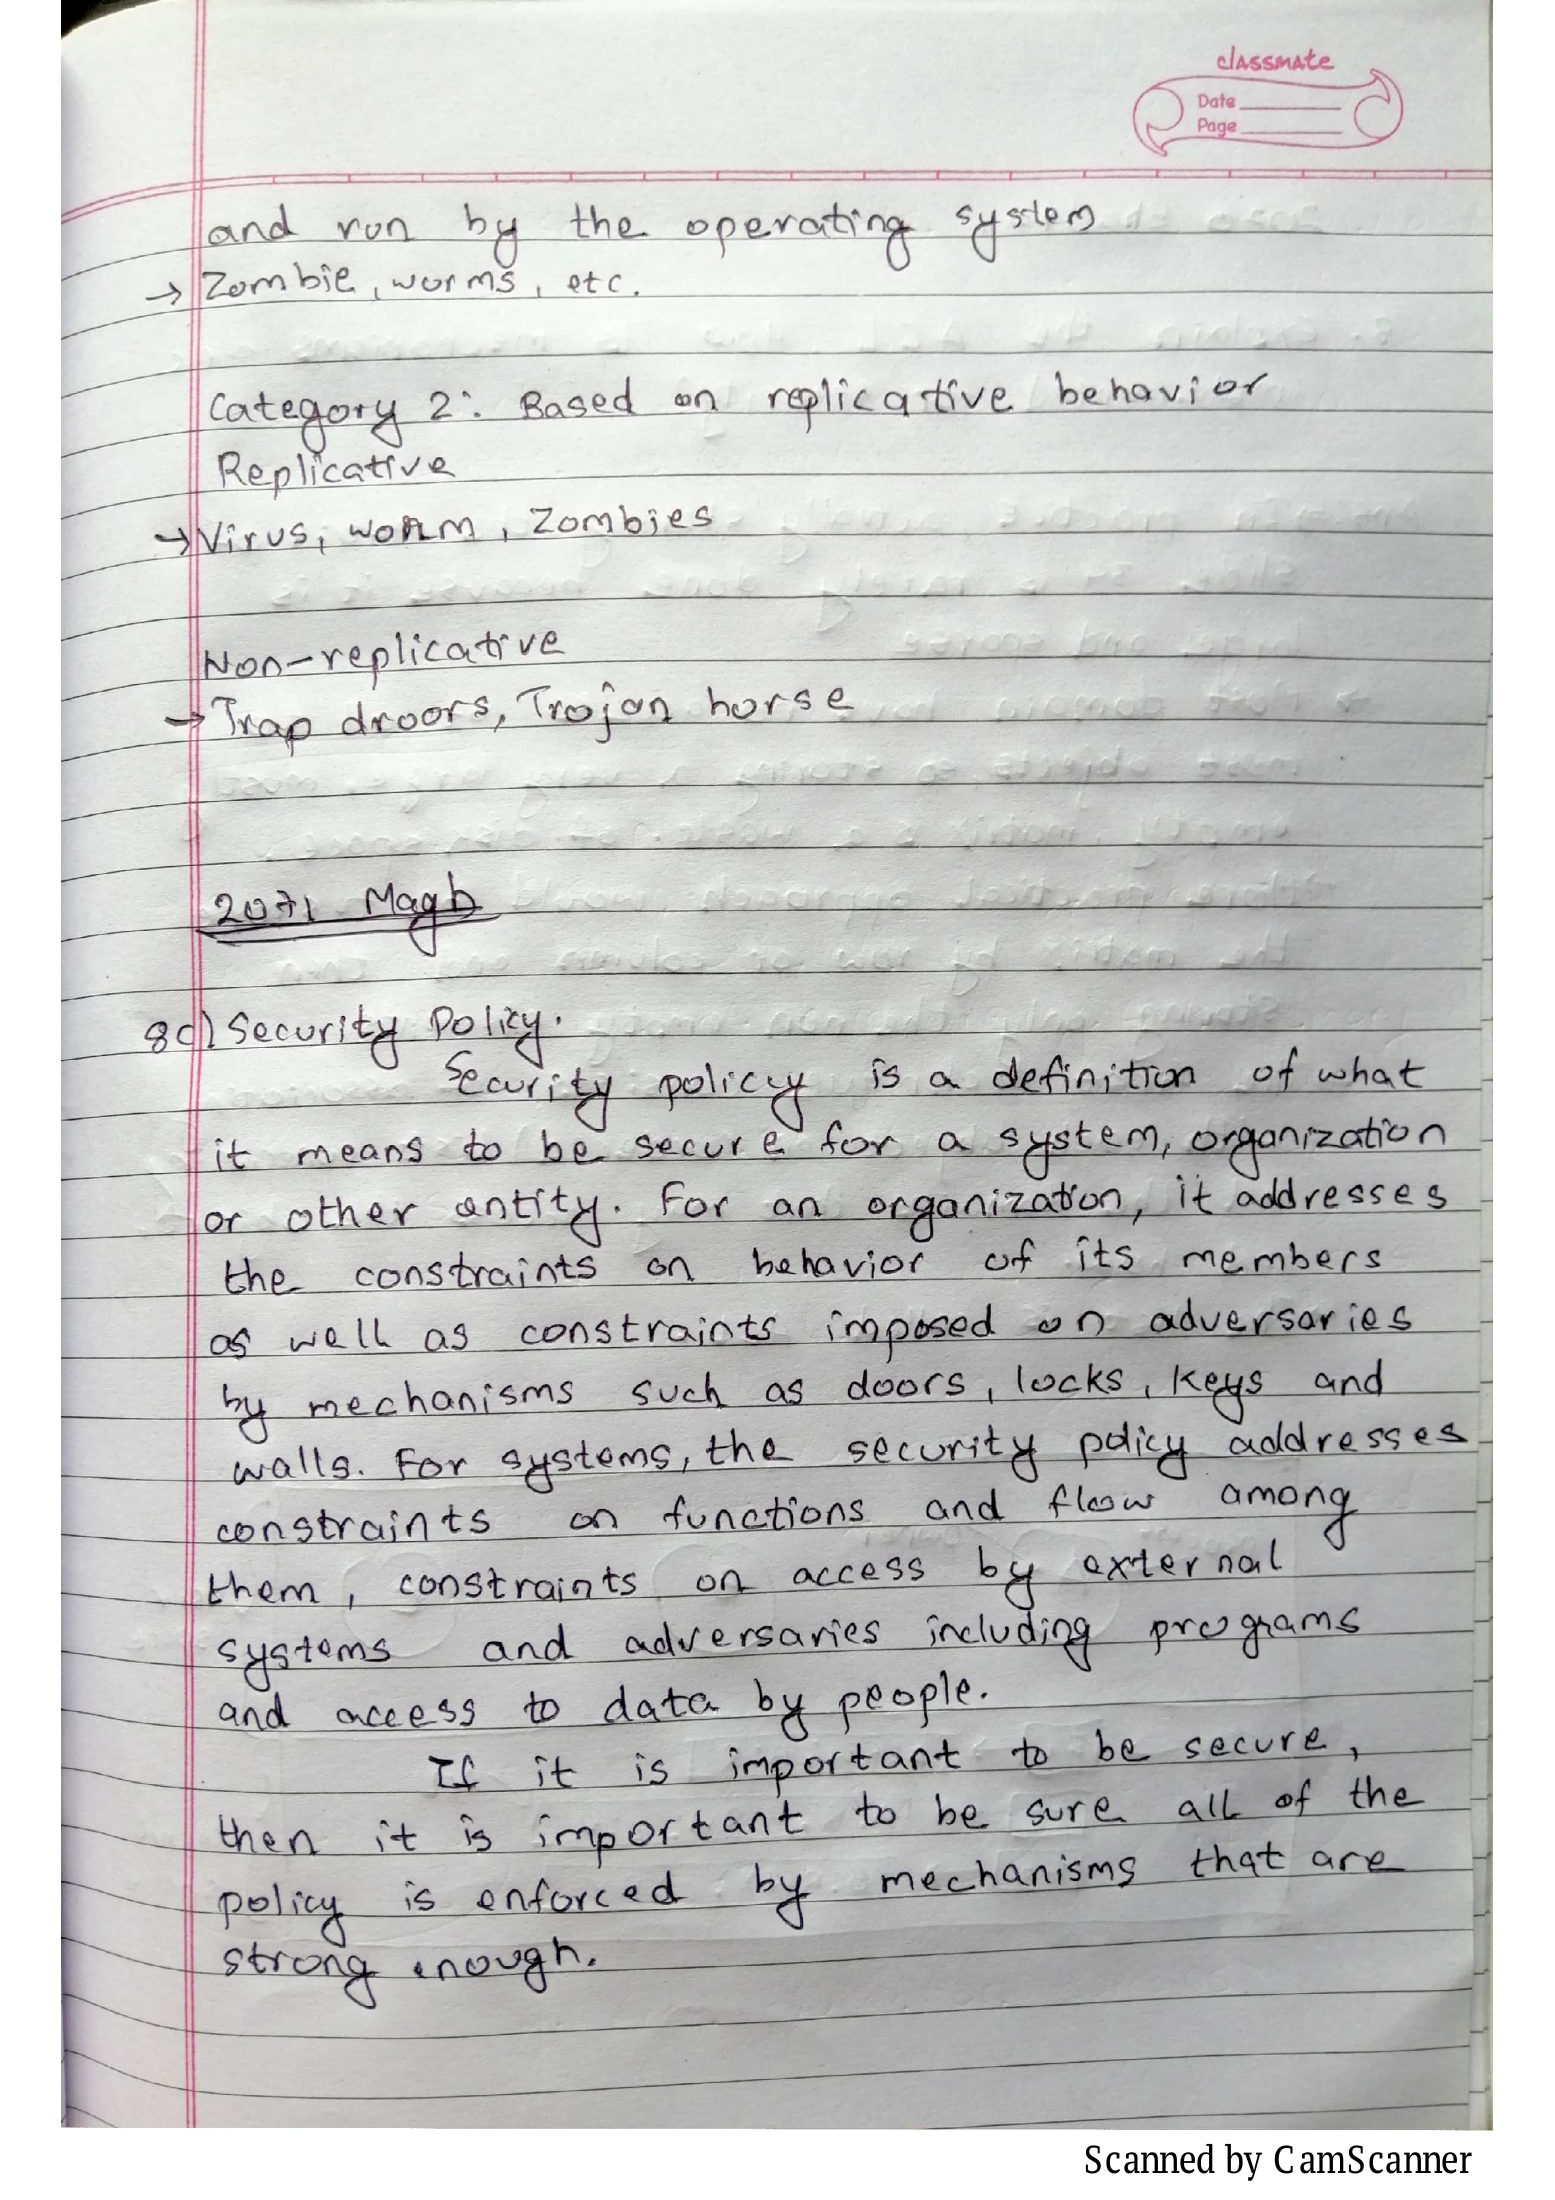 classmate
Date
Page
and run by the operating system
→ Zombie, worms, etc.
Category 2: Based on replicative behavior
Replicative
→ Virus, worm, Zombies
Non-replicative
→ Trap droors, Trojan horse
2071 Magh
8c) Security Policy.
Security policy is a definition of what
it means to be secure for a system, organization
or other entity. For an organization, it addresses
the constraints on behavior of its members
as well as constraints imposed on adversaries
by mechanisms such as doors, locks, keys and
walls. For systems, the security policy addresses
constraints on functions and flow among
them, constraints on access by external
systems and adversaries including programs
and access to data by people.
If it is important to be secure,
then it is important to be sure all of the
policy is enforced by mechanisms that are
strong enough.
Scanned by CamScanner